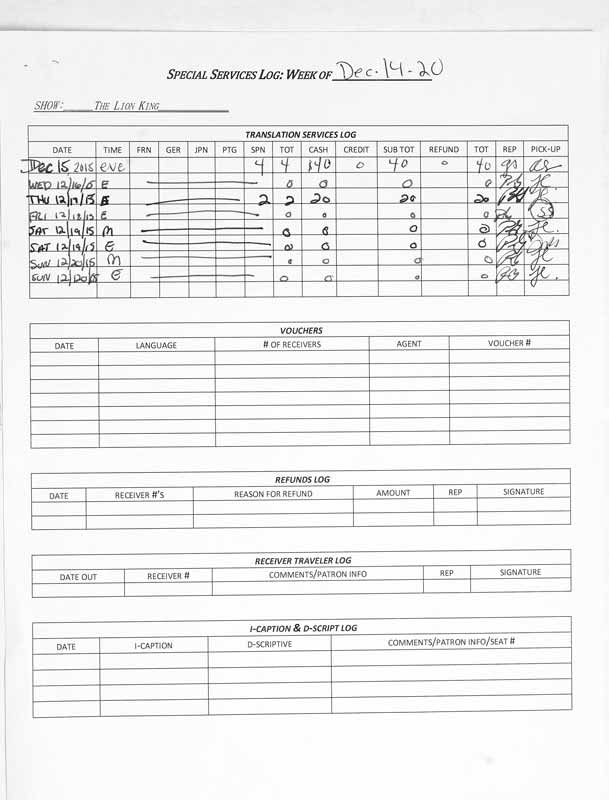 SPECIAL SERVICES LOG: WEEK OF Dec. 14-20
SHOW: THE LION KING
TRANSLATION SERVICES LOG
DATE TIME FRN GER JPN PTG SPN TOT CASH CREDIT SUB TOT REFUND TOT REP PICK-UP
Dec 15 2015 eve 4 4 $40 0 40 0 40
WED 12/16/15 E 0 0 0 0
THU 12/17/15 E 2 2 20 20 20
FRI 12/18/15 E 0 0 0 0 SS
SAT 12/19/15 M 0 0 0 0
SAT 12/19/15 E 0 0 0 0
SUN 12/20/15 M 0 0 0 0
SUN 12/20/15 E 0 0 0 0
VOUCHERS
DATE LANGUAGE # OF RECEIVERS AGENT VOUCHER #
REFUNDS LOG
DATE RECEIVER #'S REASON FOR REFUND AMOUNT REP SIGNATURE
RECEIVER TRAVELER LOG
DATE OUT RECEIVER # COMMENTS/PATRON INFO REP SIGNATURE
I-CAPTION & D-SCRIPT LOG
DATE I-CAPTION D-SCRIPTIVE COMMENTS/PATRON INFO/SEAT #